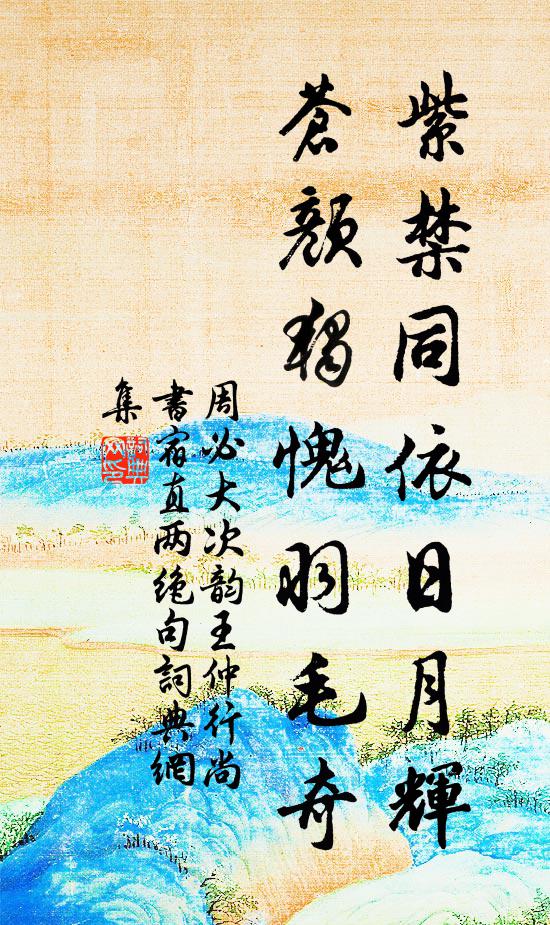 紫禁同依日月輝
蒼顏獨愧羽毛奇
周必大次韵王仲行尚
書宿直两绝句詞典網
集